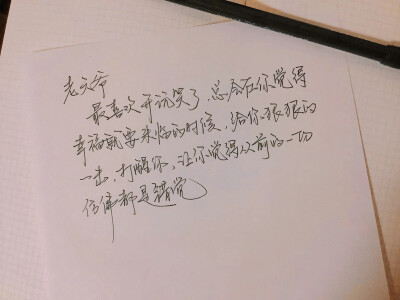 老天爷
最喜欢开玩笑了，总会在你觉得
幸福就要来临的时候，给你狠狠的
一击，打醒你，让你觉得从前的一切
仿佛都是错觉